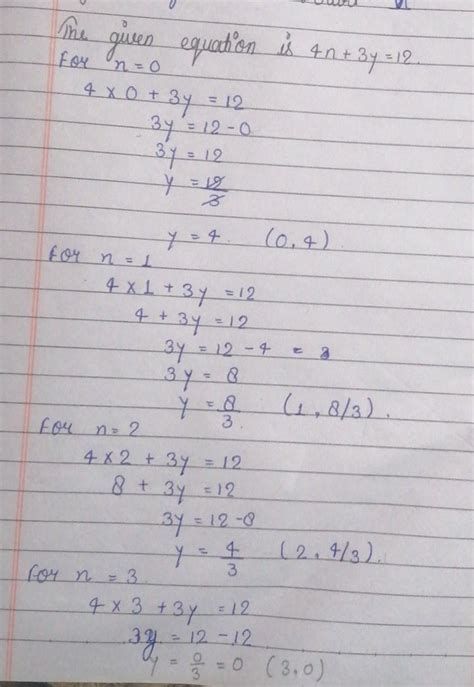 The given equation is 4n+3y=12.
For n=0
4 × 0 + 3y = 12
3y = 12-0
3y = 12
y = 12/3
y = 4. (0,4)
For n = 1
4 × 1 + 3y = 12
4 + 3y = 12
3y = 12 - 4 = 8
3y = 8
y = 8/3 (1, 8/3).
For n= 2
4×2 + 3y = 12
8 + 3y = 12
3y = 12-8
y = 4/3 (2, 4/3).
For n = 3
4 × 3 + 3y = 12
3y = 12 - 12
y = 0/3 = 0 (3,0)